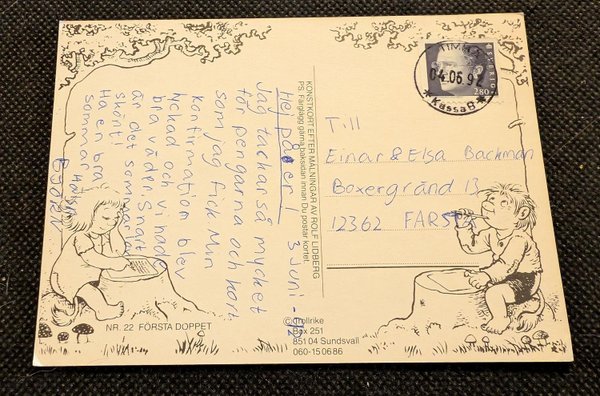 Hej på er!
3 Juni -92
Jag tackar så mycket
för pengarna och kort
som jag fick. Min
konfirmation blev
lyckad och vi had
bra väder. Snart
är det sommarlo
skönt!
Ha en bra
sommar Hälsn
BJÖRN
KONSTKORT EFTER MÅLNINGAR AV ROLF LIDBERG
PS. Färglägg gärna baksidan innan Du postar kortet.
TIMRÅ
04.06.92
*Kassa 8*
SVERIGE
280
Till
Einar & Elsa Backman
Boxergränd 13
12362 FARSTA
NR. 22 FÖRSTA DOPPET
© Trollrike
Box 251
851 04 Sundsvall
060-15 06 86